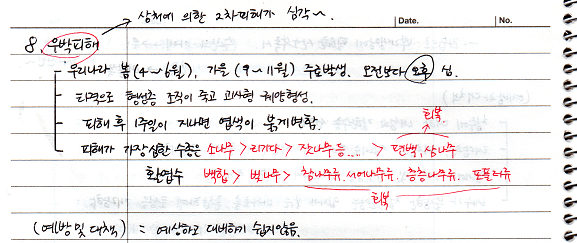 상처에 의한 2차피해가 심각~.
Date. No.
8. 우박피해
우리나라 봄(4~6월), 가을(9~11월) 주로발생. 오전보다 오후 심.
타격으로 형성층 조직이 죽고 괴사형 궤양형성.
피해 후 1주일이 지나면 엽색이 붉게변함.
회복.
피해가 가장심한 수종은 소나무 > 리기다 > 잣나무 등.... > 편백, 삼나무
활엽수 백합 > 벚나무 > 참나무류, 서어나무류, 층층나무류, 포플러류
회복
(예방 및 대책) = 예상하고 대비하기 쉽지않음.